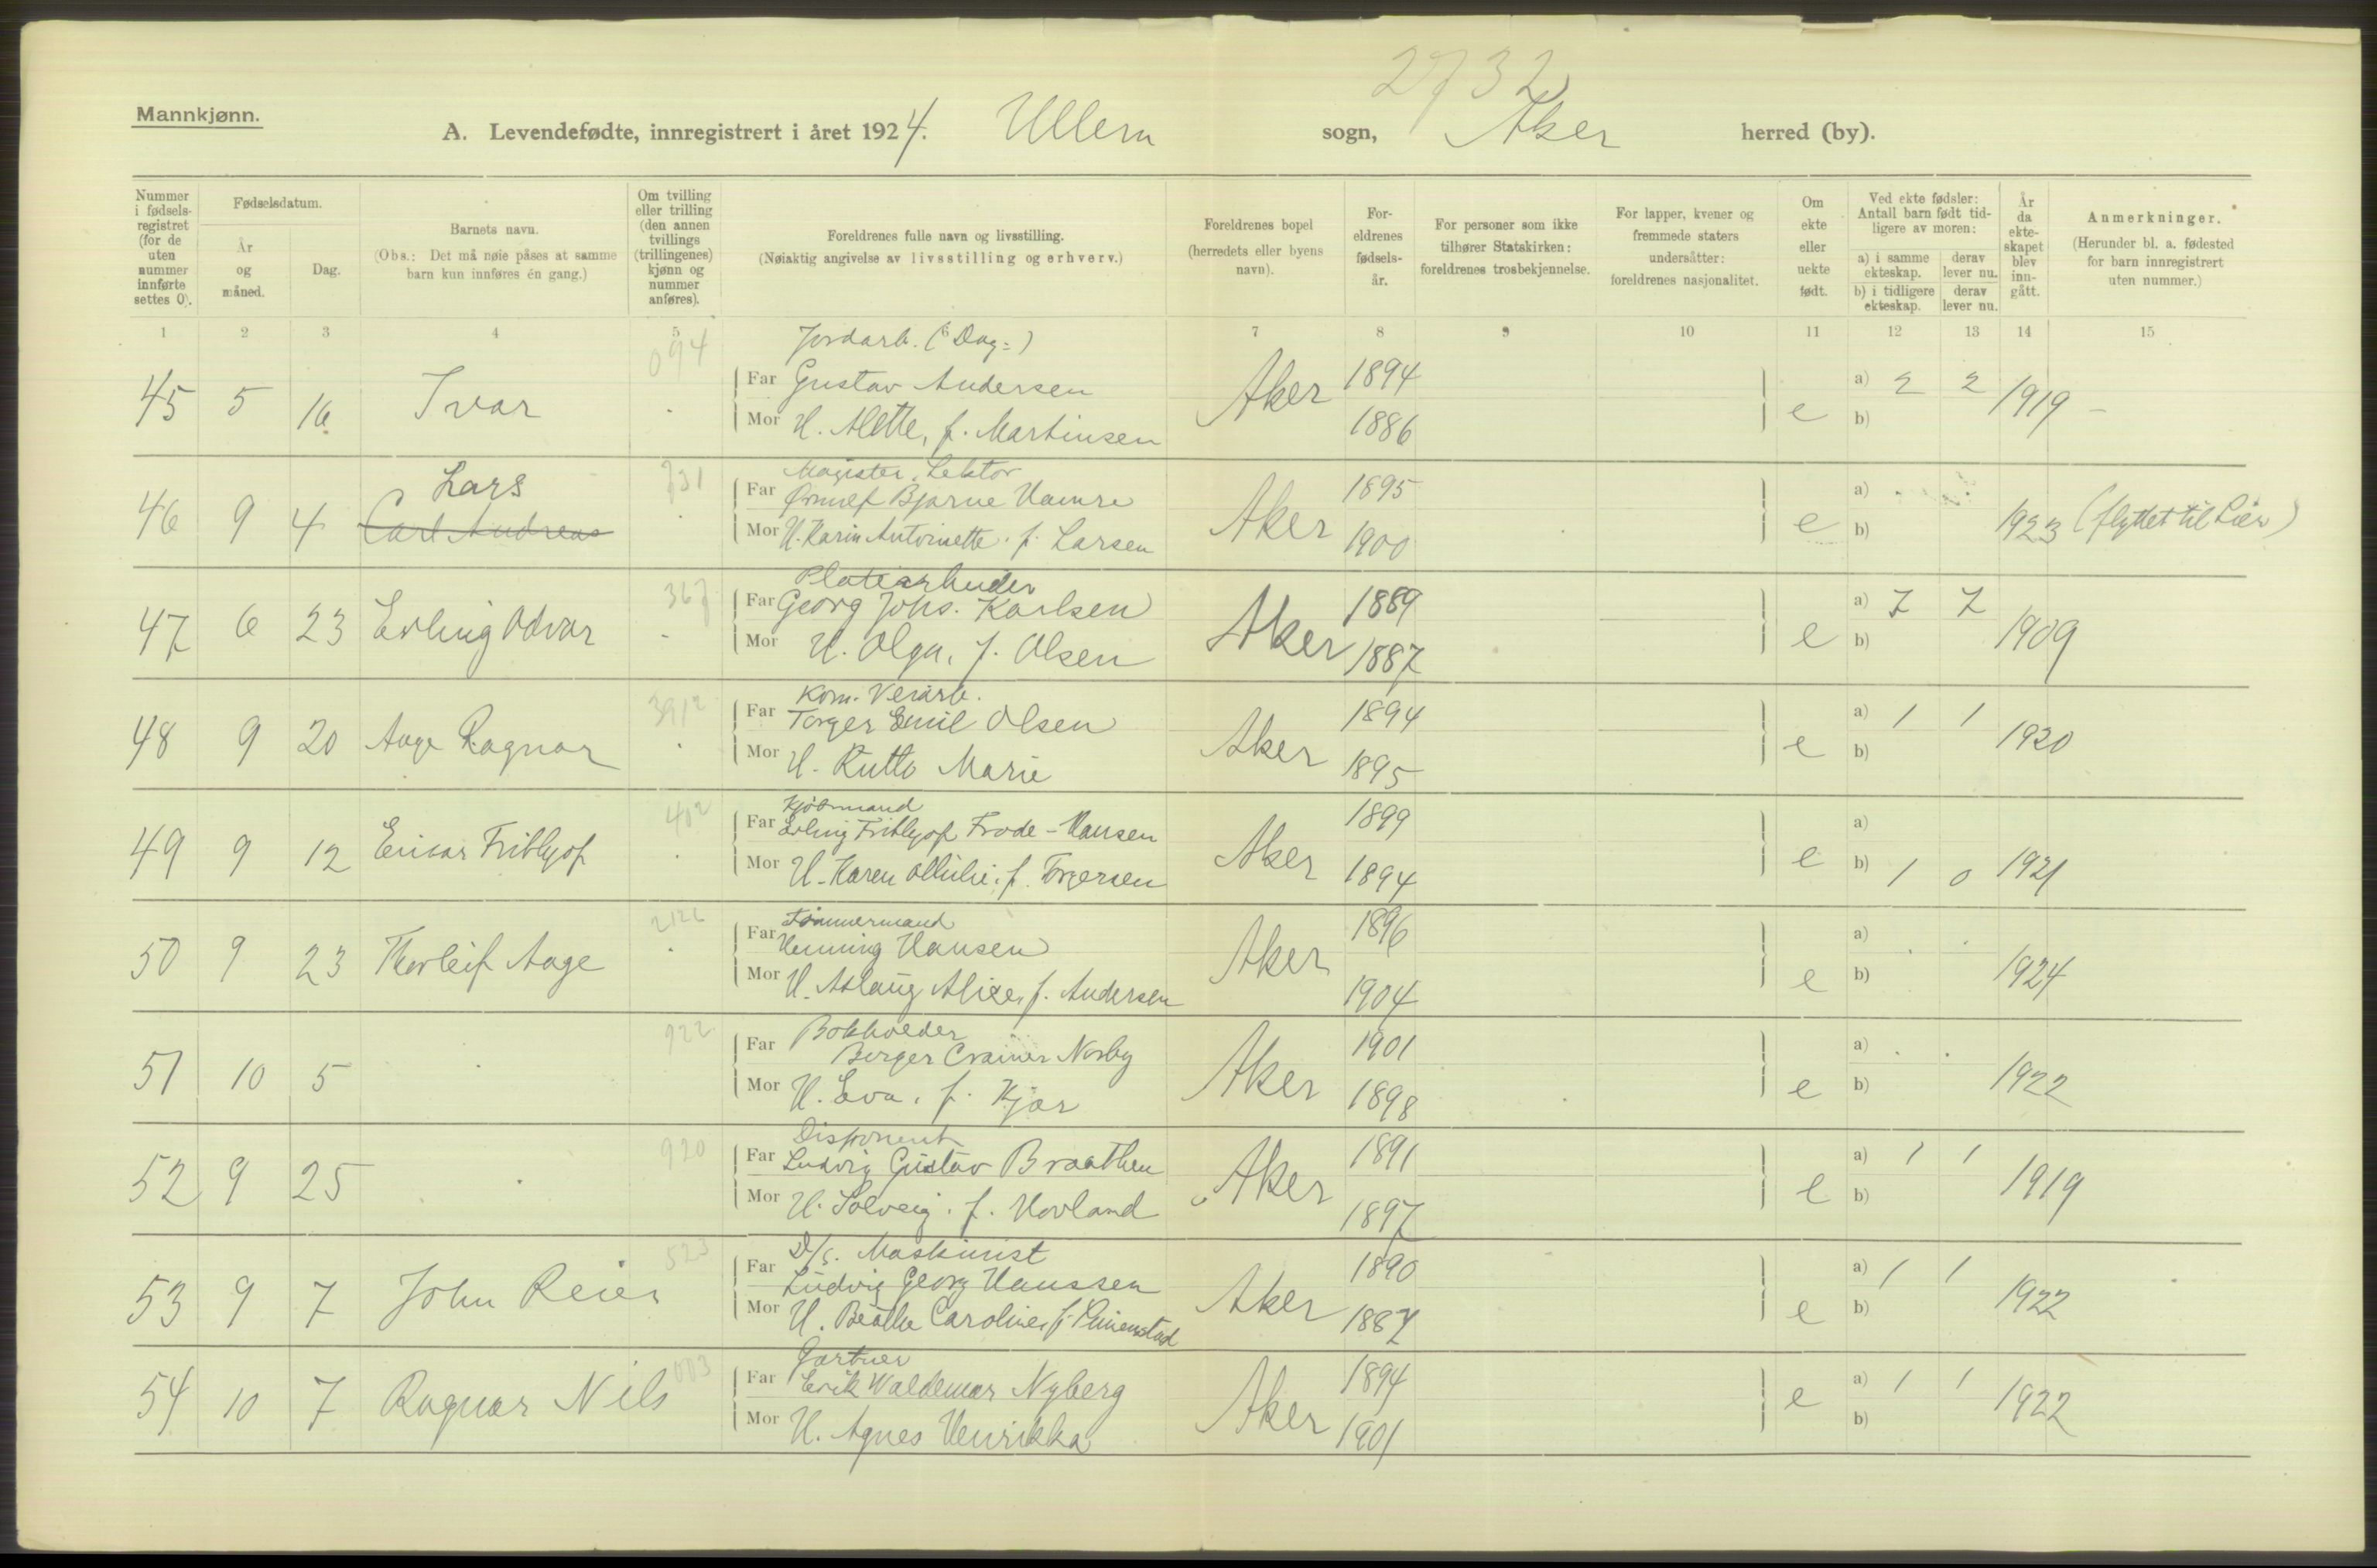 2732
Mannkjønn.
A. Levendefødte, innregistrert i året 1924. Ullern sogn, Aker herred (by).
Nummer i fødsels-registret (for de uten nummer innførte settes 0).
Fødselsdatum.
År og måned.
Dag.
Barnets navn.
(Obs.: Det må nøie påses at samme barn kun innføres én gang.)
Om tvilling eller trilling (den annen tvillings (trillingenes) kjønn og nummer anføres).
Foreldrenes fulle navn og livsstilling.
(Nøiaktig angivelse av livsstilling og erhverv.)
Foreldrenes bopel (herredets eller byens navn).
For-eldrenes fødsels-år.
For personer som ikke tilhører Statskirken: foreldrenes trosbekjennelse.
For lapper, kvener og fremmede staters undersåtter: foreldrenes nasjonalitet.
Om ekte eller uekte født.
Ved ekte fødsler: Antall barn født tid-ligere av moren:
a) i samme ekteskap. derav lever nu.
b) i tidligere ekteskap. derav lever nu.
År da ekte-skapet blev inn-gått.
Anmerkninger.
(Herunder bl. a. fødested for barn innregistrert uten nummer.)
1 2 3 4 5 6 7 8 9 10 11 12 13 14 15
094 Jordarb. (Dag=)
45 5 16 Ivar Far Gustav Andersen Aker 1894 e a) 2 2 1919 –
Mor H. Alette, f. Martinsen 1886 b)
Lars 731 Magister, Lektor
46 9 4 Carl Andreas Far Ørnulf Bjarne Hamre Aker 1895 e a) 1923 (flyttet til Lier)
Mor H. Karin Antoinette f. Larsen 1900 b)
367 Platearbeider
47 6 23 Erling Odvar Far Georg Johs. Karlsen Aker 1889 e a) 7 7 1909
Mor H. Olga, f. Olsen 1887 b)
3912 Kom. Veiarb.
48 9 20 Aage Ragnar Far Torger Emil Olsen Aker 1894 e a) 1 1 1920
Mor H. Ruth Marie 1895 b)
402 Kjøbmand
49 9 12 Einar Frithjof Far Erling Frithjof Frode-Hansen Aker 1899 e a) 1921
Mor H. Karen Othilie, f. Torgersen 1894 b) 1 0
2126 Tømmermand
50 9 23 Thorleif Aage Far Henning Hansen Aker 1896 e a) 1924
Mor H. Aslaug Alice, f. Andersen 1904 b)
922 Bokholder
51 10 5 Far Birger Cramer Norby Aker 1901 e a) 1922
Mor H. Eva, f. Kjær 1898 b)
920 Disponent
52 9 25 Far Ludvig Gustav Braathen Aker 1891 e a) 1 1 1919
Mor H. Solveig, f. Hovland 1897 b)
523 D/s. Maskinist
53 9 7 John Reier Far Ludvig Georg Hanssen Aker 1890 e a) 1 1 1922
Mor H. Beathe Caroline, f. 1887 b)
003 Gartner
54 10 7 Ragnar Nils Far Erik Waldemar Nyberg Aker 1894 e a) 1 1 1922
Mor H. Agnes Henrikka 1901 b)